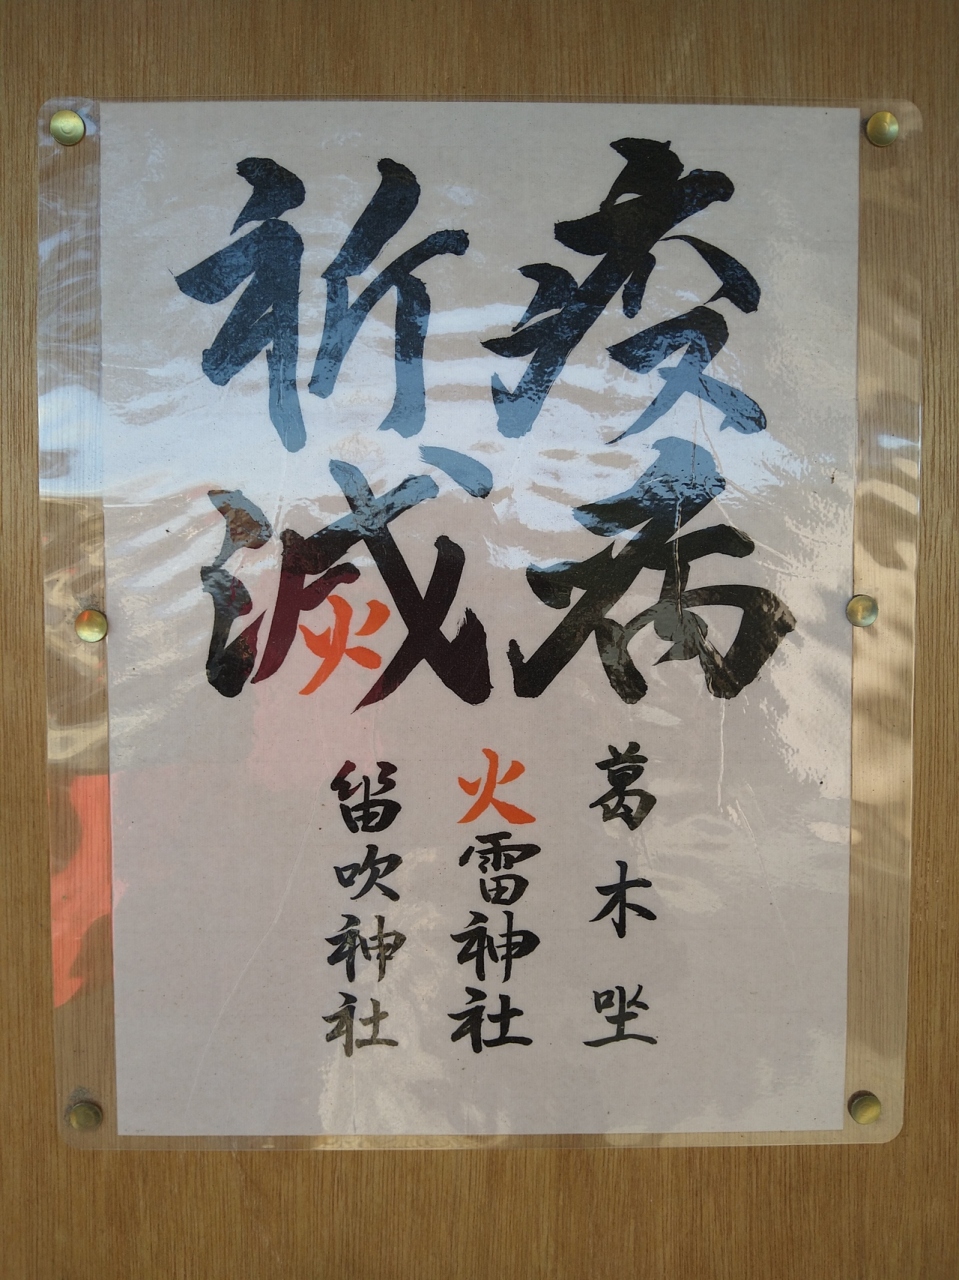 疫病
祈滅
葛木坐
火雷神社
笛吹神社